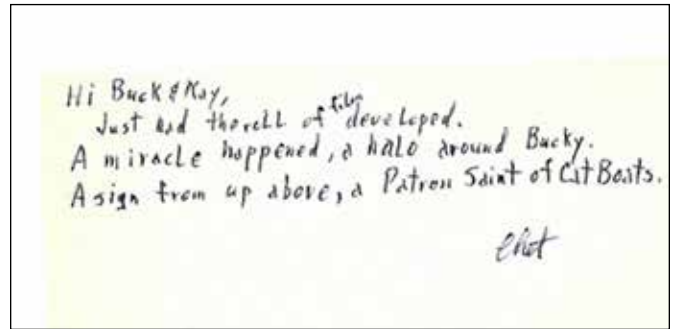 Hi Buck & Kay,
Just had the roll of film developed.
A miracle happened, a halo around Bucky.
A sign from up above, a Patron Saint of Cat Boats.
Chet